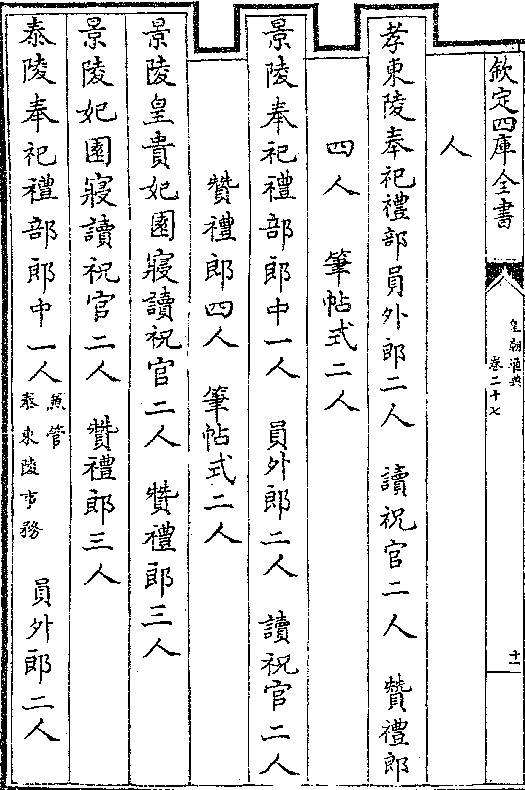 欽定四庫全書
皇朝通典
卷二十七
十一
人
孝東陵奉祀禮部員外郎二人　讀祝官二人　贊禮郎
四人　筆帖式二人
景陵奉祀禮部郎中一人　員外郎二人　讀祝官二人
贊禮郎四人　筆帖式二人
景陵皇貴妃園寢讀祝官二人　贊禮郎三人
景陵妃園寢讀祝官二人　贊禮郎三人
泰陵奉祀禮部郎中一人兼管泰東陵事務　員外郎二人